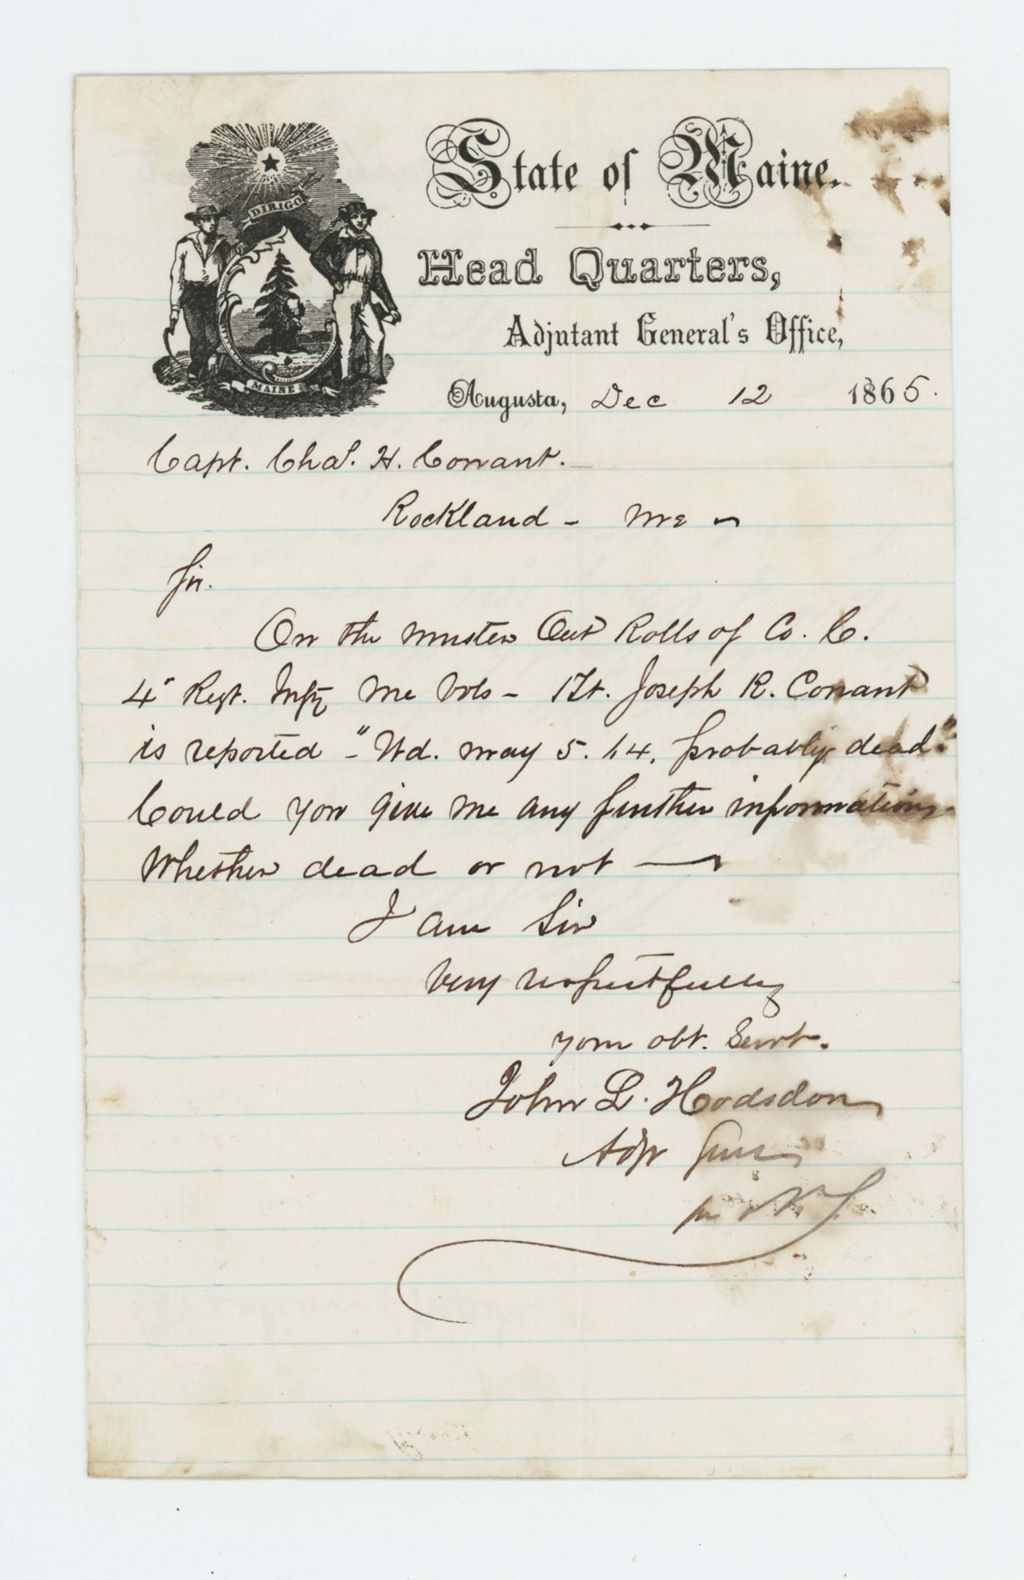 DIRIGO
MAINE
State of Maine.
Head Quarters,
Adjutant General's Office,
Augusta, Dec 12 1865.
Capt. Chas. H. Conant.
Rockland - Me
Sir.
On the Muster Out Rolls of Co. C.
4" Regt. Infty Me Vols - 1 Lt. Joseph R. Conant
is reported - "Wd. May 5. 64, probably dead."
Could you give me any further information
Whether dead or not
I am Sir
Very respectfully
your obt. Servt.
John L. Hodsdon
Adjt Genl